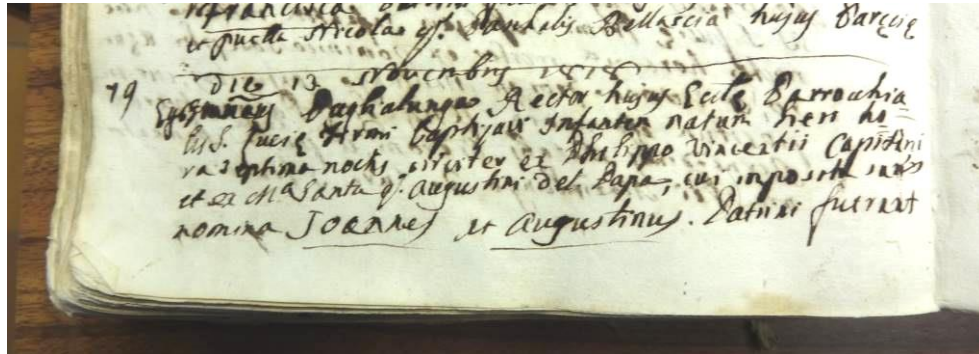 et puella Nicolao qm. Pauhalis Bellascia hujus Paręcię
Die 13 Novembris 1818
79 Ego Paghalunga Rector hujus Eccle Parrochia=
lis S. Lucię Firmi baptizavi Infantem natum heri ho=
ra septima noctis circiter ex Philippo Vincentii Capitini
et ex Ma. Santa q. Augustini Del Papa, cui imposita
nomina Joannes et Augustinus. Patrini fuerunt